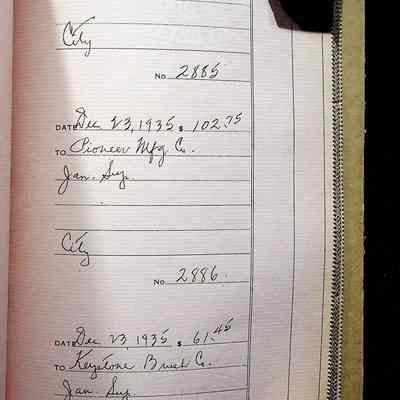 City
No. 2885
DATE Dec 23, 1935 $ 102.75
TO Pioneer Mfg Co.
Jan. Sup.
City
No. 2886.
DATE Dec 23 1935 $ 61.45
TO Keystone Brush Co.
Jan. Sup.